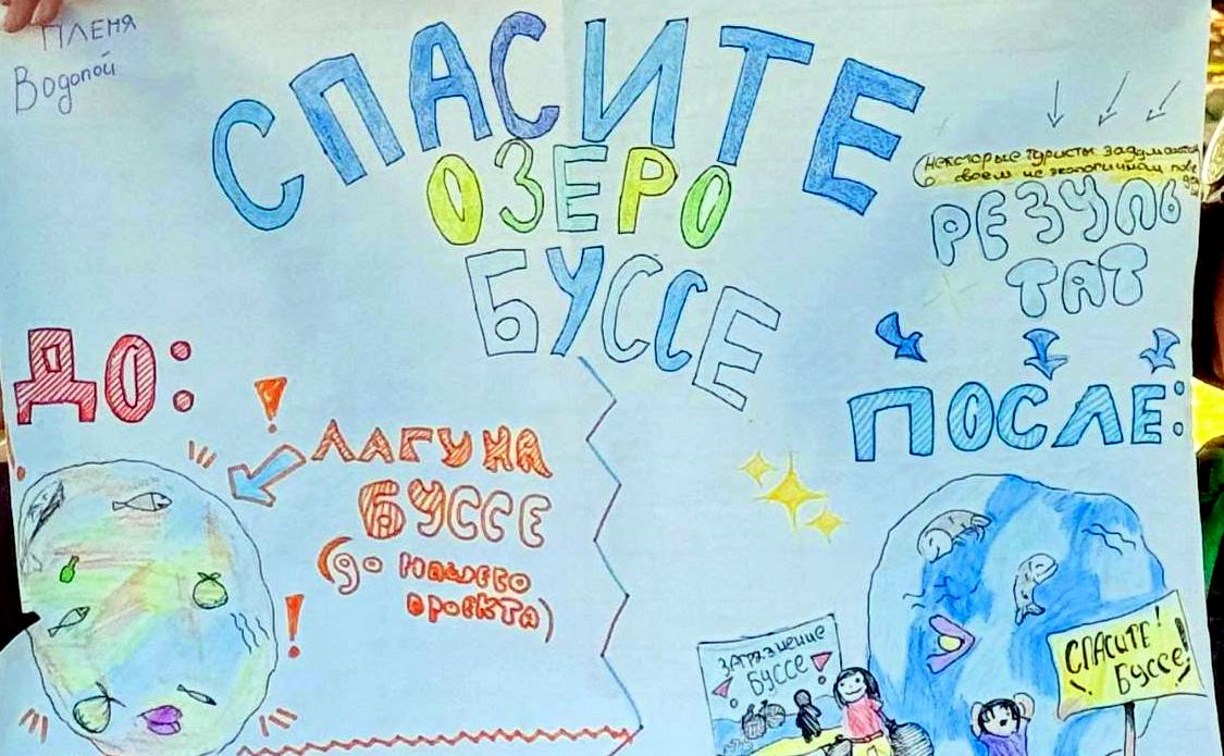 ПЛЕНЯ
Водопой
СПАСИТЕ
ОЗЕРО
БУССЕ
Некоторые туристы задумаются
о своем не экологичном пове
РЕЗУЛЬ
ТАТ
ДО:
ПОСЛЕ:
ЛАГУНА
БУССЕ
(до нашего
проекта)
ЗАГРЯЗНЕНИЕ
БУССЕ
СПАСИТЕ!
Буссе!